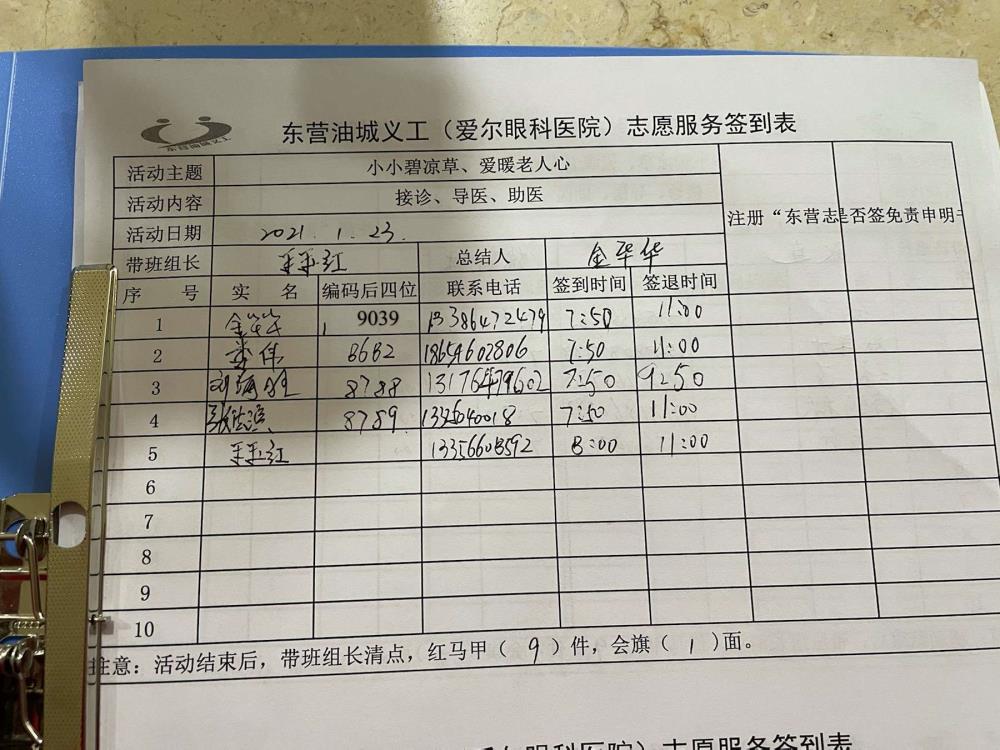 东营油城义工
东营油城义工（爱尔眼科医院）志愿服务签到表
活动主题 小小碧凉草、爱暖老人心
活动内容 接诊、导医、助医
活动日期 2021.1.23.
注册“东营志 是否签免责申明
带班组长 总结人
序 号 实 名 编码后四位 联系电话 签到时间 签退时间
1 9039 13386472479 7:50 11:00
2 8682 18654602806 7:50 11:00
3 8788 7:50 9:50
4 8789 7:50 11:00
5 13356608592 8:00 11:00
6
7
8
9
10
注意：活动结束后，带班组长清点，红马甲（ 9 ）件，会旗（ 1 ）面。
爱尔眼科医院）志愿服务签到表